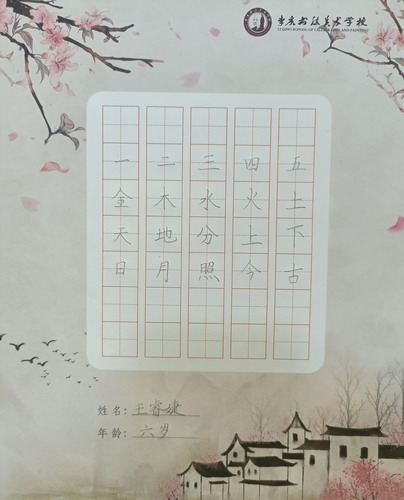 李庆书法美术学校
LI QING SCHOOL OF CALLIGRAPHY AND PAINTING
一 二 三 四 五
金 木 水 火 土
天 地 分 上 下
日 月 照 今 古
姓名：王睿婕
年龄：六岁